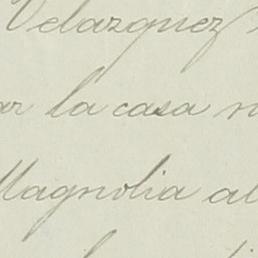 Velazquez
ar la casa n
Magnolia al